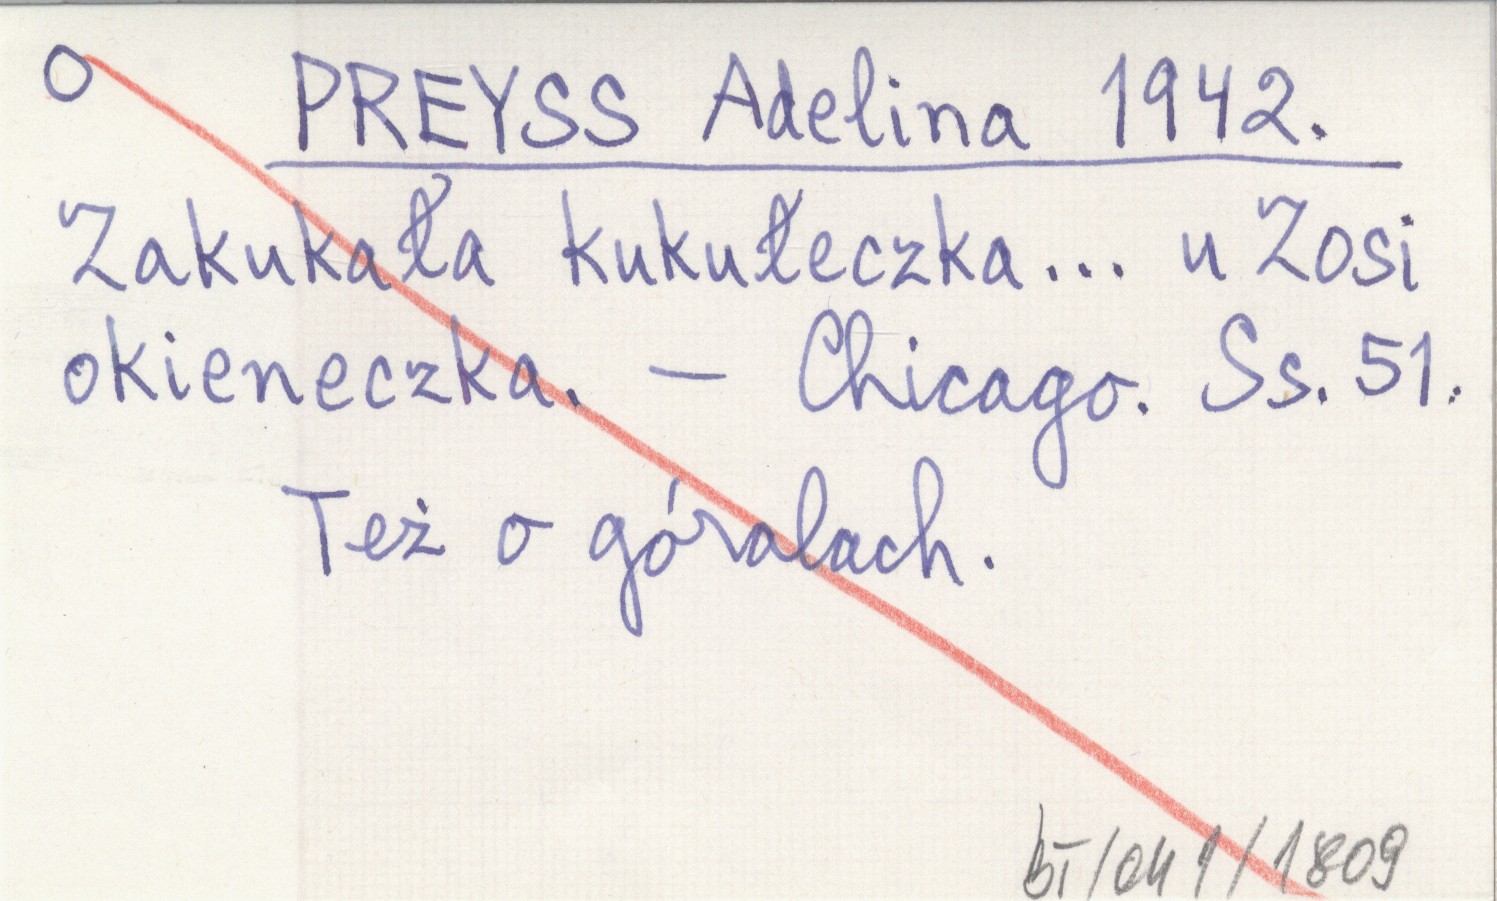 O PREYSS Adelina 1942.
Zakukała kukułeczka... u Zosi
okieneczka. — Chicago. Ss. 51.
Też o góralach.
/1809